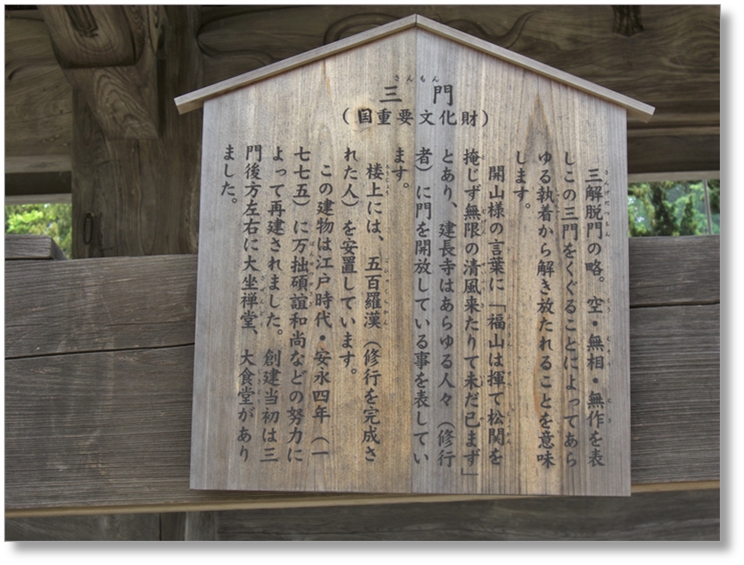 さんもん
三門
（国重要文化財）
三解脱門の略。空・無相・無作を表
しこの三門をくぐることによってあら
ゆる執着から解き放たれることを意味
します。
開山様の言葉に「福山は揮て松関を
掩じず無限の清風来たりて未だ已まず」
とあり、建長寺はあらゆる人々（修行
者）に門を開放している事を表してい
ます。
楼上には、五百羅漢（修行を完成さ
れた人）を安置しています。
この建物は江戸時代・安永四年（一
七七五）に万拙碩誼和尚などの努力に
よって再建されました。創建当初は三
門後方左右に大坐禅堂、大食堂があり
ました。